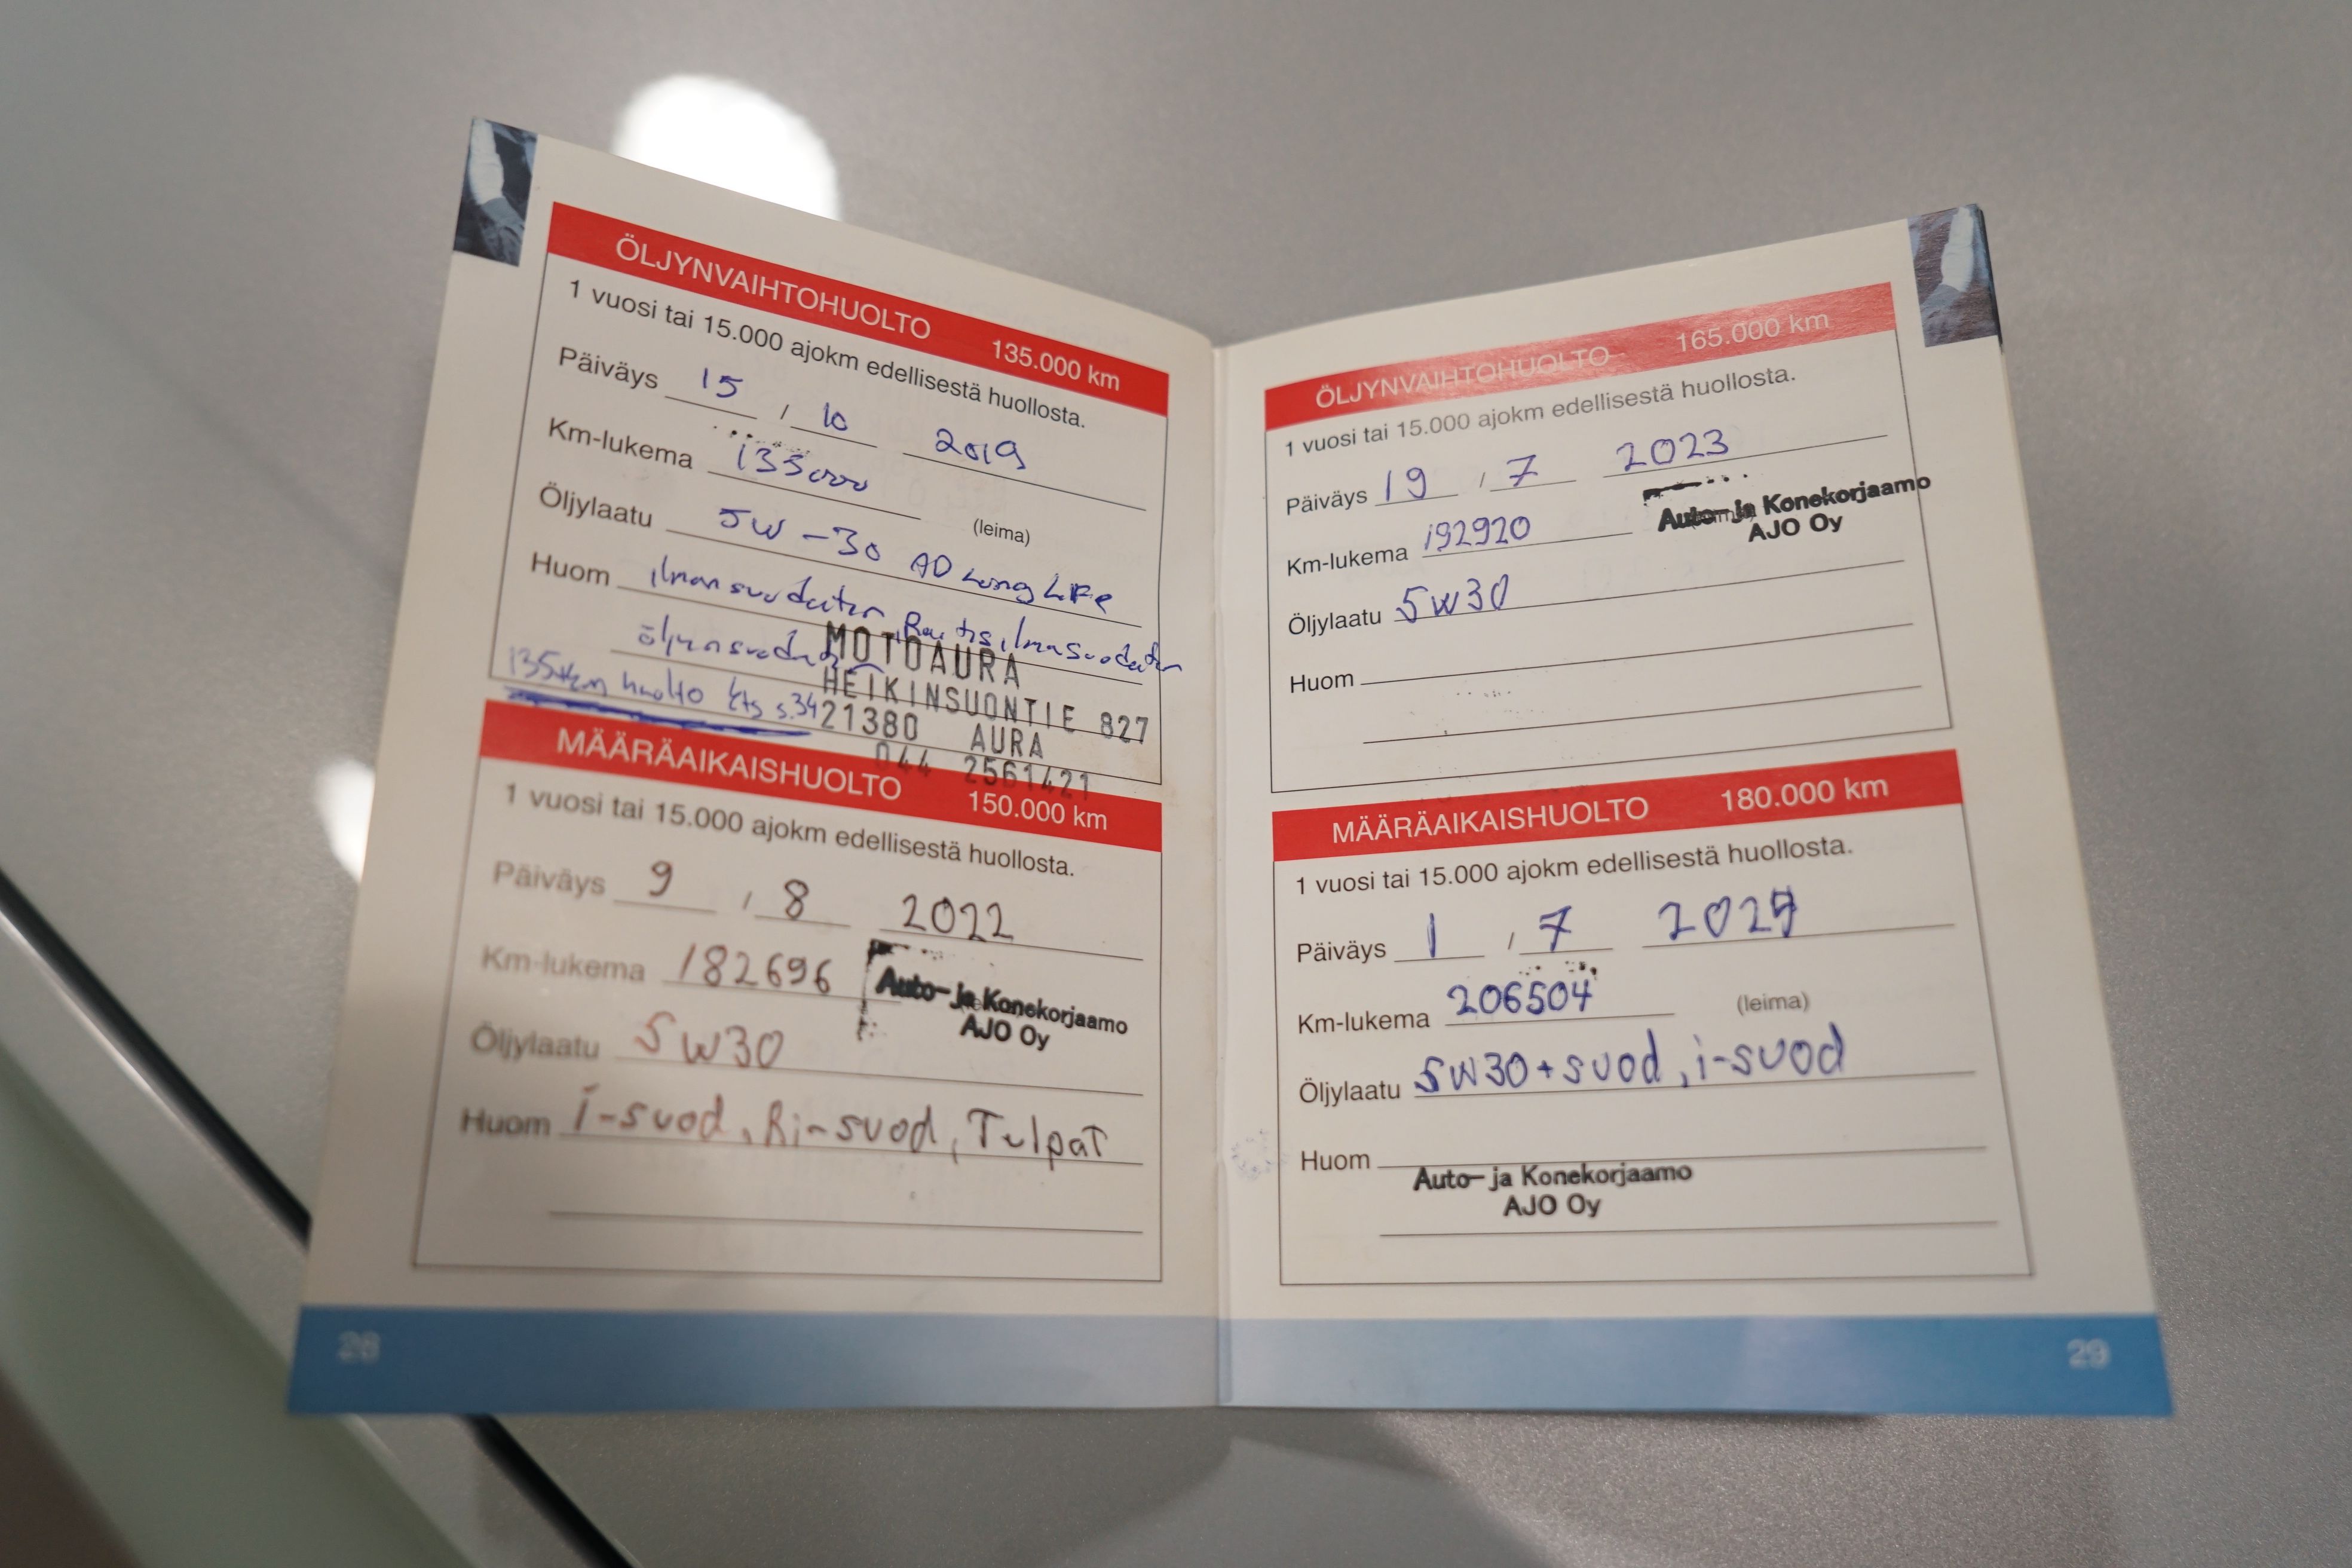 ÖLJYNVAIHTOHUOLTO 135.000 km
1 vuosi tai 15.000 ajokm edellisestä huollosta.
Päiväys 15 / 10 2019
Km-lukema 135000
(leima)
Öljylaatu 5W-30 AD Long Life
Huom ilmansuodatin, Raitis ilmasuodatin
öljynsuodatin
MOTOAURA
HEIKINSUONTIE 827
21380 AURA
044 2561421
135tkm huolto kts s.34
MÄÄRÄAIKAISHUOLTO 150.000 km
1 vuosi tai 15.000 ajokm edellisestä huollosta.
Päiväys 9 / 8 2022
Km-lukema 182696
Auto- ja Konekorjaamo
AJO Oy
Öljylaatu 5W30
Huom i-suod, Ri-suod, Tulpat
28
ÖLJYNVAIHTOHUOLTO 165.000 km
1 vuosi tai 15.000 ajokm edellisestä huollosta.
Päiväys 19 / 7 2023
Km-lukema 192920
Auto- ja Konekorjaamo
AJO Oy
Öljylaatu 5W30
Huom
MÄÄRÄAIKAISHUOLTO 180.000 km
1 vuosi tai 15.000 ajokm edellisestä huollosta.
Päiväys 1 / 7
Km-lukema 206504
(leima)
Öljylaatu 5W30+suod, i-suod
Huom
Auto- ja Konekorjaamo
AJO Oy
29